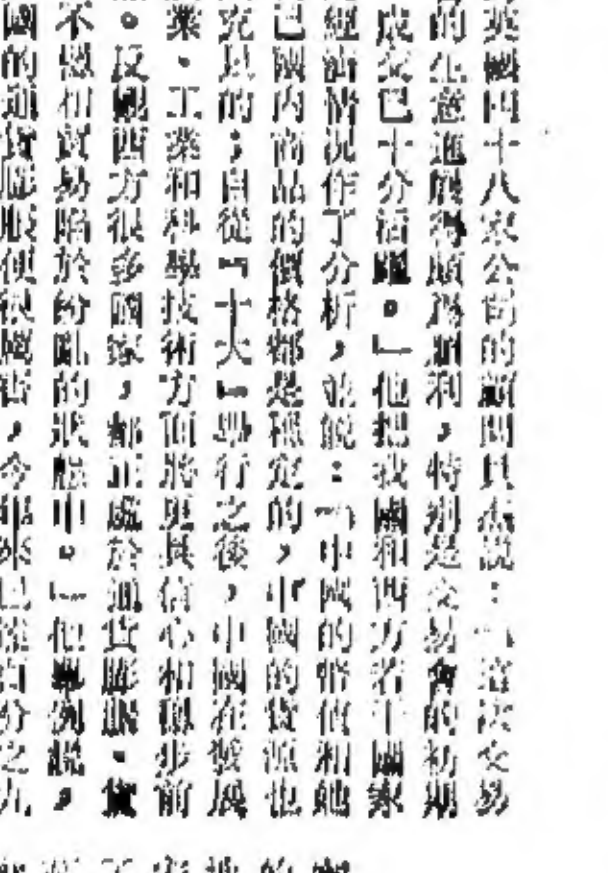 英國四十八家公司的顧問貝杰說：「這次交易
的生意進展得頗爲順利，特別是交易會的初期
成交已十分活躍。」他把我國和西方若干國家
經濟情況作了分析，並說：「中國的幣值和她
已國內商品的價格都是穩定的，中國的貨源也
充足的；自從「十大」舉行之後，中國在發展
業、工業和科學技術方面將更具信心和穩步前
。反觀西方很多國家，都正處於通貨膨脹、貨
不穩相貿易陷於紛亂的狀態中。」他舉例說，
國的通貨膨脹便很厲害，今年來已達百分之九